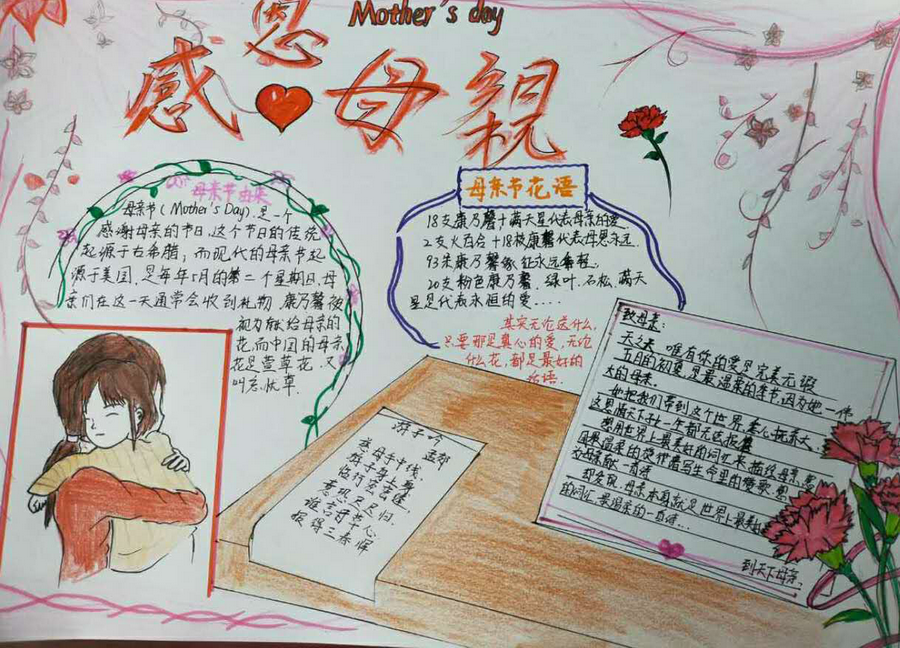 Mother's day
感恩母親
母亲节由来
母亲节(Mother's Day),是一个
感谢母亲的节日,这个节日的传统
起源于古希腊;而现代的母亲节起
源于美国,是每年5月的第二个星期日,母
亲们在这一天通常会收到礼物,康乃馨被
视为献给母亲的
花,而中国的母亲
花是萱草花,又
叫忘忧草.
母亲节花语
18支康乃馨+满天星代表母亲的爱
2支火百合+18枝康馨代表母恩永远.
93朱康乃馨象征永远幸福.
20支粉色康乃馨、绿叶、石松、满天
星是代表永恒的爱....
其实无论送什么,
只要那是真心的爱,无论
什么花,都是最好的
花语.
游子吟
孟郊
慈母手中线,
游子身上衣.
临行密密缝,
意恐迟迟归.
谁言寸草心,
报得三春晖
致母亲:
天之大 唯有你的爱是完美无瑕
五月的初夏,是最温柔的季节,因为她
大的母亲.
她把我们带到这个世界,
想用世界上最美好的词汇来描绘母亲,
却发现,母亲本身就是世界上最美
的词汇,最温柔的一首诗...